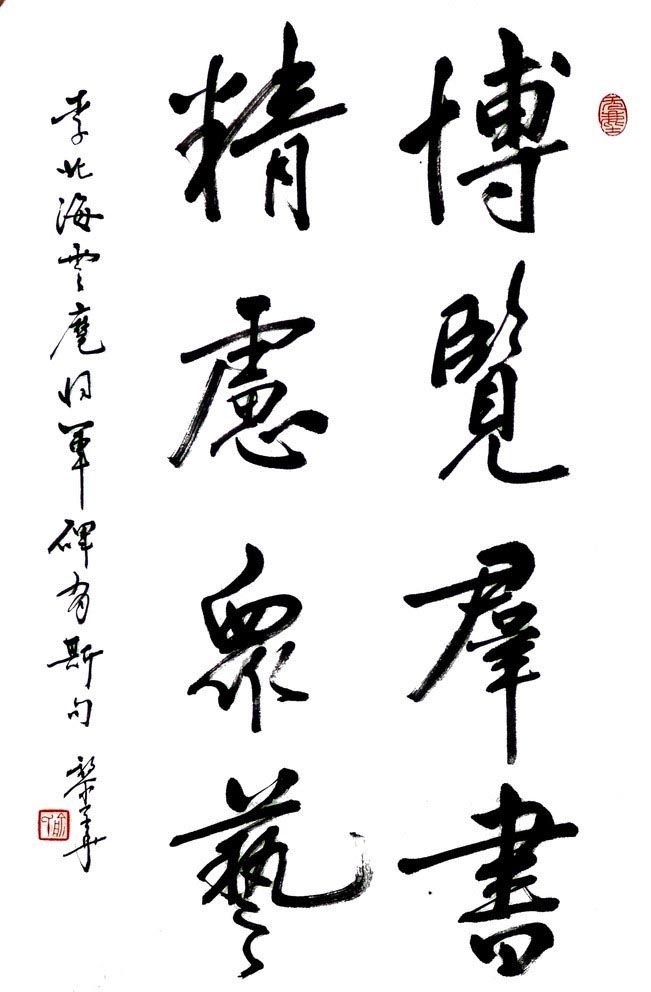 博覽羣書
精慮眾藝
李北海雲麾将軍碑有斯句